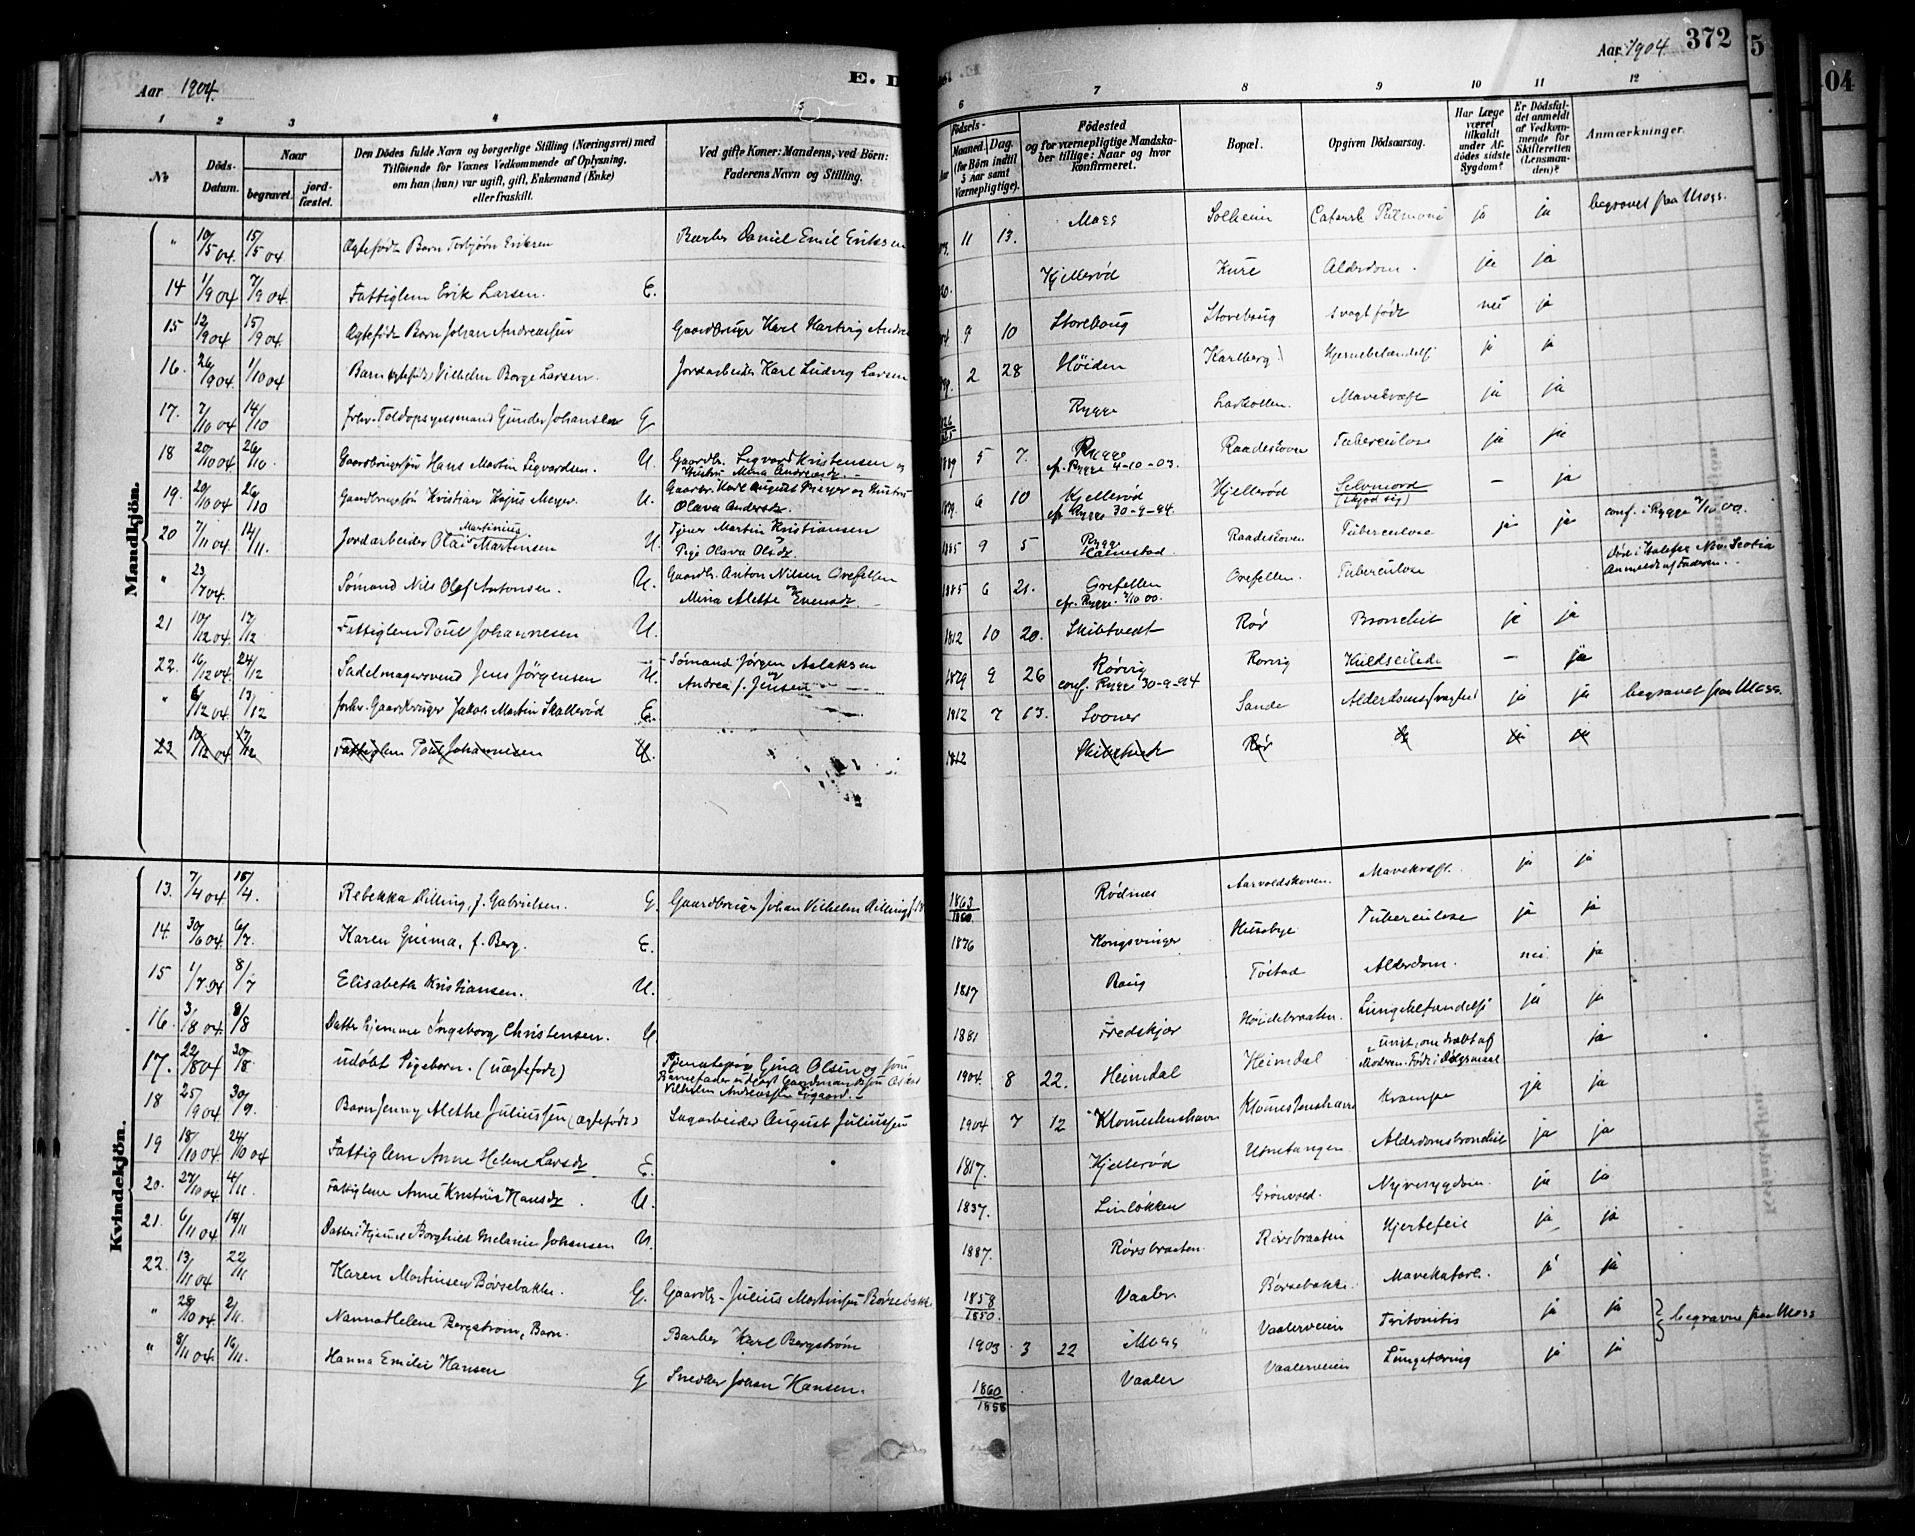 Aar 1904.
E. D
Aar 1904. 372
1 2 3 4 5 6 7 8 9 10 11 12
No
Döds-Datum.
Naar begravet. jordfæstet.
Den Dödes fulde Navn og borgerlige Stilling (Næringsvei) med Tilföiende for Voxnes Vedkommende af Oplysning, om han (hun) var ugift, gift, Enkemand (Enke) eller fraskilt.
Ved gifte Koner: Mandens, ved Börn: Faderens Navn og Stilling.
Födsels- Aar Maaned. Dag. (for Börn indtil 5 Aar samt Værnepligtige).
Födested og for værnepligtige Mandskaber tillige: Naar og hvor Konfirmeret.
Bopæl.
Opgiven Dödsaarsag.
Har Læge været tilkaldt under Afdödes sidste Sygdom?
Er Dödsfaldet anmeldt af Vedkommende for Skifteretten (Lensmanden)?
Anmærkninger.
Mandkjön.
" 10/5 04. 15/5 04 Ægtefödt Barn Torbjørn Eriksen Barber Daniel Emil Eriksen 11 13. Moss Solheim Catarrh Pulmon ja ja begravet fra Moss.
14 1/9 04 7/9 04. Fattiglem Erik Larsen. E. Kjellerød Kure Alderdom. ja ja
15 12/9 04 15/9 04. Ægtefödt Barn Johan Andreassen Gaardbruger Karl Hartvig Andre 9 10 Storebaug Storebaug svagt födt nei ja
16. 26/9 04 1/10 04 Barn (ægtefödt) Vilhelm Borge Larsen. Jordarbeider Karl Ludvig Larsen 2 28 Høiden Karlberg Hjernebetændelse ja ja
17. 7/10 04 14/10 forhv. Toldopsynsmand Gunder Johansen G Rygge Larkollen. Mavekræft ja ja
18 20/10 04 26/10 Gaardbrugersøn Hans Martin Sigvardsen. U. Gaardbr. Sigvard Kristensen og Hustru Mina Andreasd. 1889 5 7. Rygge cfr. Rygge 4-10-03. Raadeskoven Tuberculose ja ja
19. 20/10 04 26/10 Gaardbrugersøn Kristian Kajus Meyer U. Gaardbr. Karl August Meyer og Hustru Olava Andersd. 1879. 6 10 Kjellerød cfr. Rygge 30-9-94. Kjellerød Selvmord (skjød sig) — ja
20 7/11 04 14/11. Jordarbeider Olai Martinius Martinsen U. Tjener Martin Kristiansen Pige Olava Olsd. 1885 9 5 Rygge Halmstad Raadeskoven Tuberculose ja ja conf. i Rygge 7/10 00.
" 23/7 04. Sömand Nils Olaf Antonsen. U. Gaardbr. Anton Nilsen Orefellen Mina Alette Evensd. 1885 6 21. Orefellen cfr. Rygge 7/10 00 Orefellen. Tuberculose Död i Halifax Nov. Scotia Anmeldt af Faderen.
21 10/12 04 17/12 Fattiglem Poul Johannesen U. 1812 10 20. Skibtvedt Rør Bronchit ja ja
22. 16/12 04. 24/12 Sadelmagersvend Jens Jörgensen U. Sömand Jørgen Aslaksen og Andrea f. Jensen 1879 9 26 Rørvig conf. Rygge 30-9-94 Rørvig Kuldseilede — ja
" 6/12 04 13/12 forhv. Gaardbruger Jakob Martin Skallerød E. 1812 7 13. Sooner Sande Alderdomssvaghed ja ja begravet fra Moss.
23 10/12 04 17/12 Fattiglem Poul Johannesen U. 1812 Skibtvedt Rør
Kvindekjön.
13. 7/4 04 15/4. Rebekka Dilling, f. Gabrielsen. G. Gaardbruger Johan Vilhelm Dilling 1863/1860. Rödnes Aarvoldskoven. Mavekræft. ja ja
14. 30/6 04 6/7. Karen Guima, f. Berg. E. 1876 Kongsvinger Huseby Tuberculose ja ja
15 1/7 04 8/7 Elisabeth Kristiansen. U. 1817 Tøstad Alderdom. nei ja
16. 3/8 04 8/8 Datter hjemme Ingeborg Christensen. U 1881 Fredskjær Høidebraaten. Lungebetændelse ja ja
17. 22/8 04 30/8. udöbt Pigebarn. (uægtefödt) Tjenestepige Gina Olsen og som Barnefader udlagt Gaardmandssøn Oskar Vilhelm Andreassen 1904. 8 22. Heimdal Heimdal uvist, om dræbt af Moderen. Födt i Dølgsmaal ja
18 25/9 04 30/9. Barn Jenny Alethe Juliussen (ægtefödt) Sagarbeider August Juliussen 1904 7 12 Klomestenshavn Klomestenshavn Krampe ja ja
19 18/10 04 24/10 04 Fattiglem Anne Helene Larsd. E. 1817. Kjellerød Alderdomsbronchit ja ja
20. 27/10 04 4/11. Fattiglem Anne Kristine Hansd. U. 1837. Linløkken Grönvold. Nyresygdom. ja ja
21. 6/11 04 12/11 Datter i Hjemmet Borghild Melanie Johansen U. 1887. Rörsbraaten. Rörsbraaten Hjertefeil ja ja
22. 13/11 04 22/11 Karen Martinsen Børsebakke. G. Gaardbr. Julius Martinsen Børsebakke 1858/1850. Vaaler Børsebakke. Mavekatarr. ja ja
" 28/10 04 2/11. Nanna Helene Bergström, Barn. Barber Karl Bergström 1903 3 22 Moss Vaalerveien ja ja begravne fra Moss
" 8/11 04. 16/11. Hanna Emilie Hansen G Snedker Johan Hansen. 1860/1858 Vaaler Vaalerveien Lungetæring ja ja